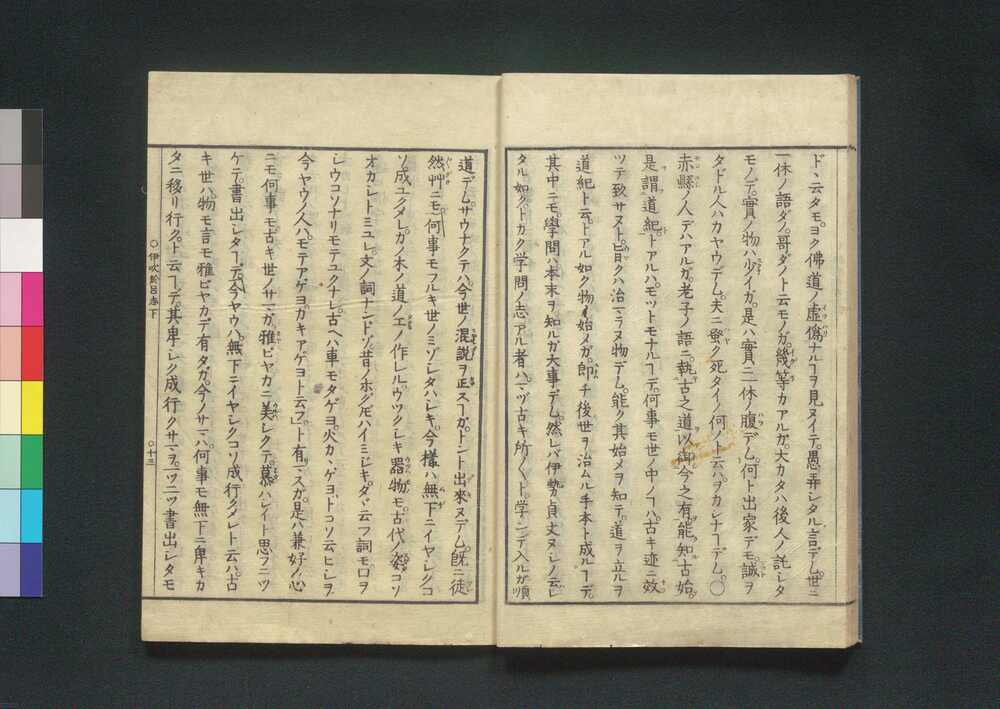 ドヽ云タモヨク佛道ノ虚僞ナルヿヲ見ヌイテ愚弄シタル言デム世ニ
一休ノ語ダノ哥ダノト云モノガ幾等カアルガ大カタハ後人ノ託シタ
モノデ實ノ物ハ少イガ是ハ實ニ一休ノ腹デム何ト出家デモ誠ヲ
タドル人ハカヤウデム夫ニ蚤ク死タイノ何ノト云ハヲカシナヿデム○
赤縣ノ人デハアルガ老子ノ語ニ執古之道以御今之有能知古始
是謂道紀トアルハモツトモナルヿデ何事モ世ノ中ノヿハ古キ迹ニ效
ツテ致サヌト旨クハ治ラヌ物デム能ク其始メヲ知テ道ヲ立ルヲ
道紀ト云トアル如ク物ノ始メガ即チ後世ヲ治ムル手本ト成ルヿデ
其中ニモ學問ハ本末ヲ知ルガ大事デム然レバ伊勢貞丈ヌシノ云レ
タル如クトカク学問ノ志アル者ハマヅ古キ所ヘト学ンデ入ルガ順
道デムサウナクテハ今世ノ混説ヲ正スヿガトント出來ヌデム既ニ徒
然艸ニモ何事モフルキ世ノミゾシタハシキ今様ハ無下ニイヤシクコ
ソ成ユクメレカノ木ノ道ノエノ作レルウツクシキ器物モ古代ノ姿コソ
オカシトミユレ文ノ詞ナンドゾ昔ノホグドモハイミジキタヾ云フ詞モ口ヲ
シウコソナリモテユクナレ古ヘハ車モタゲヨ火カヽゲヨトコソ云ヒシヲ
今ヤウノ人ハモテアゲヨカキアゲヨト云フト有マスガ是ハ兼好ノ心
ニモ何事モ古キ世ノサマガ雅ビヤカニ美シクテ慕ハシイト思フニツ
ケテ書出シタヿデ今ヤウハ無下ニイヤシクコソ成行クメレト云ハ古
キ世ハ物モ言モ雅ビヤカデ有タガ今ノサマハ何事モ無下ニ卑キカ
タニ移リ行クト云ヿデ其卑シク成行クサマヲ一ツ二ツ書出シタモ
○伊吹於呂志下
○十三